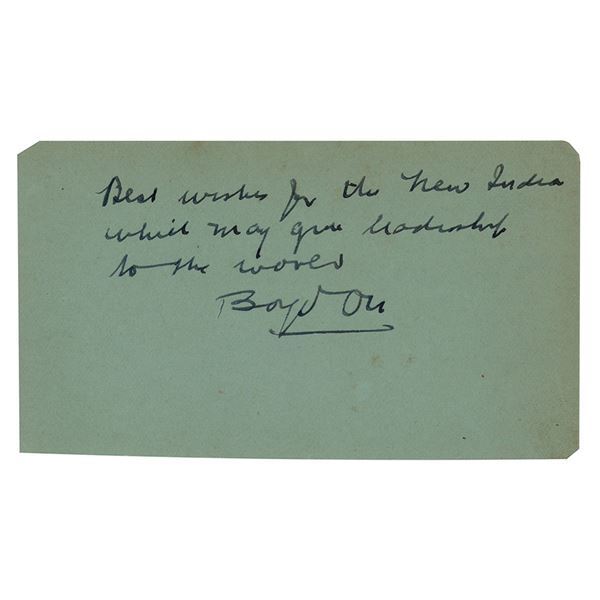 Best wishes for the New India
which may give leadership
to the world
Boyd Orr